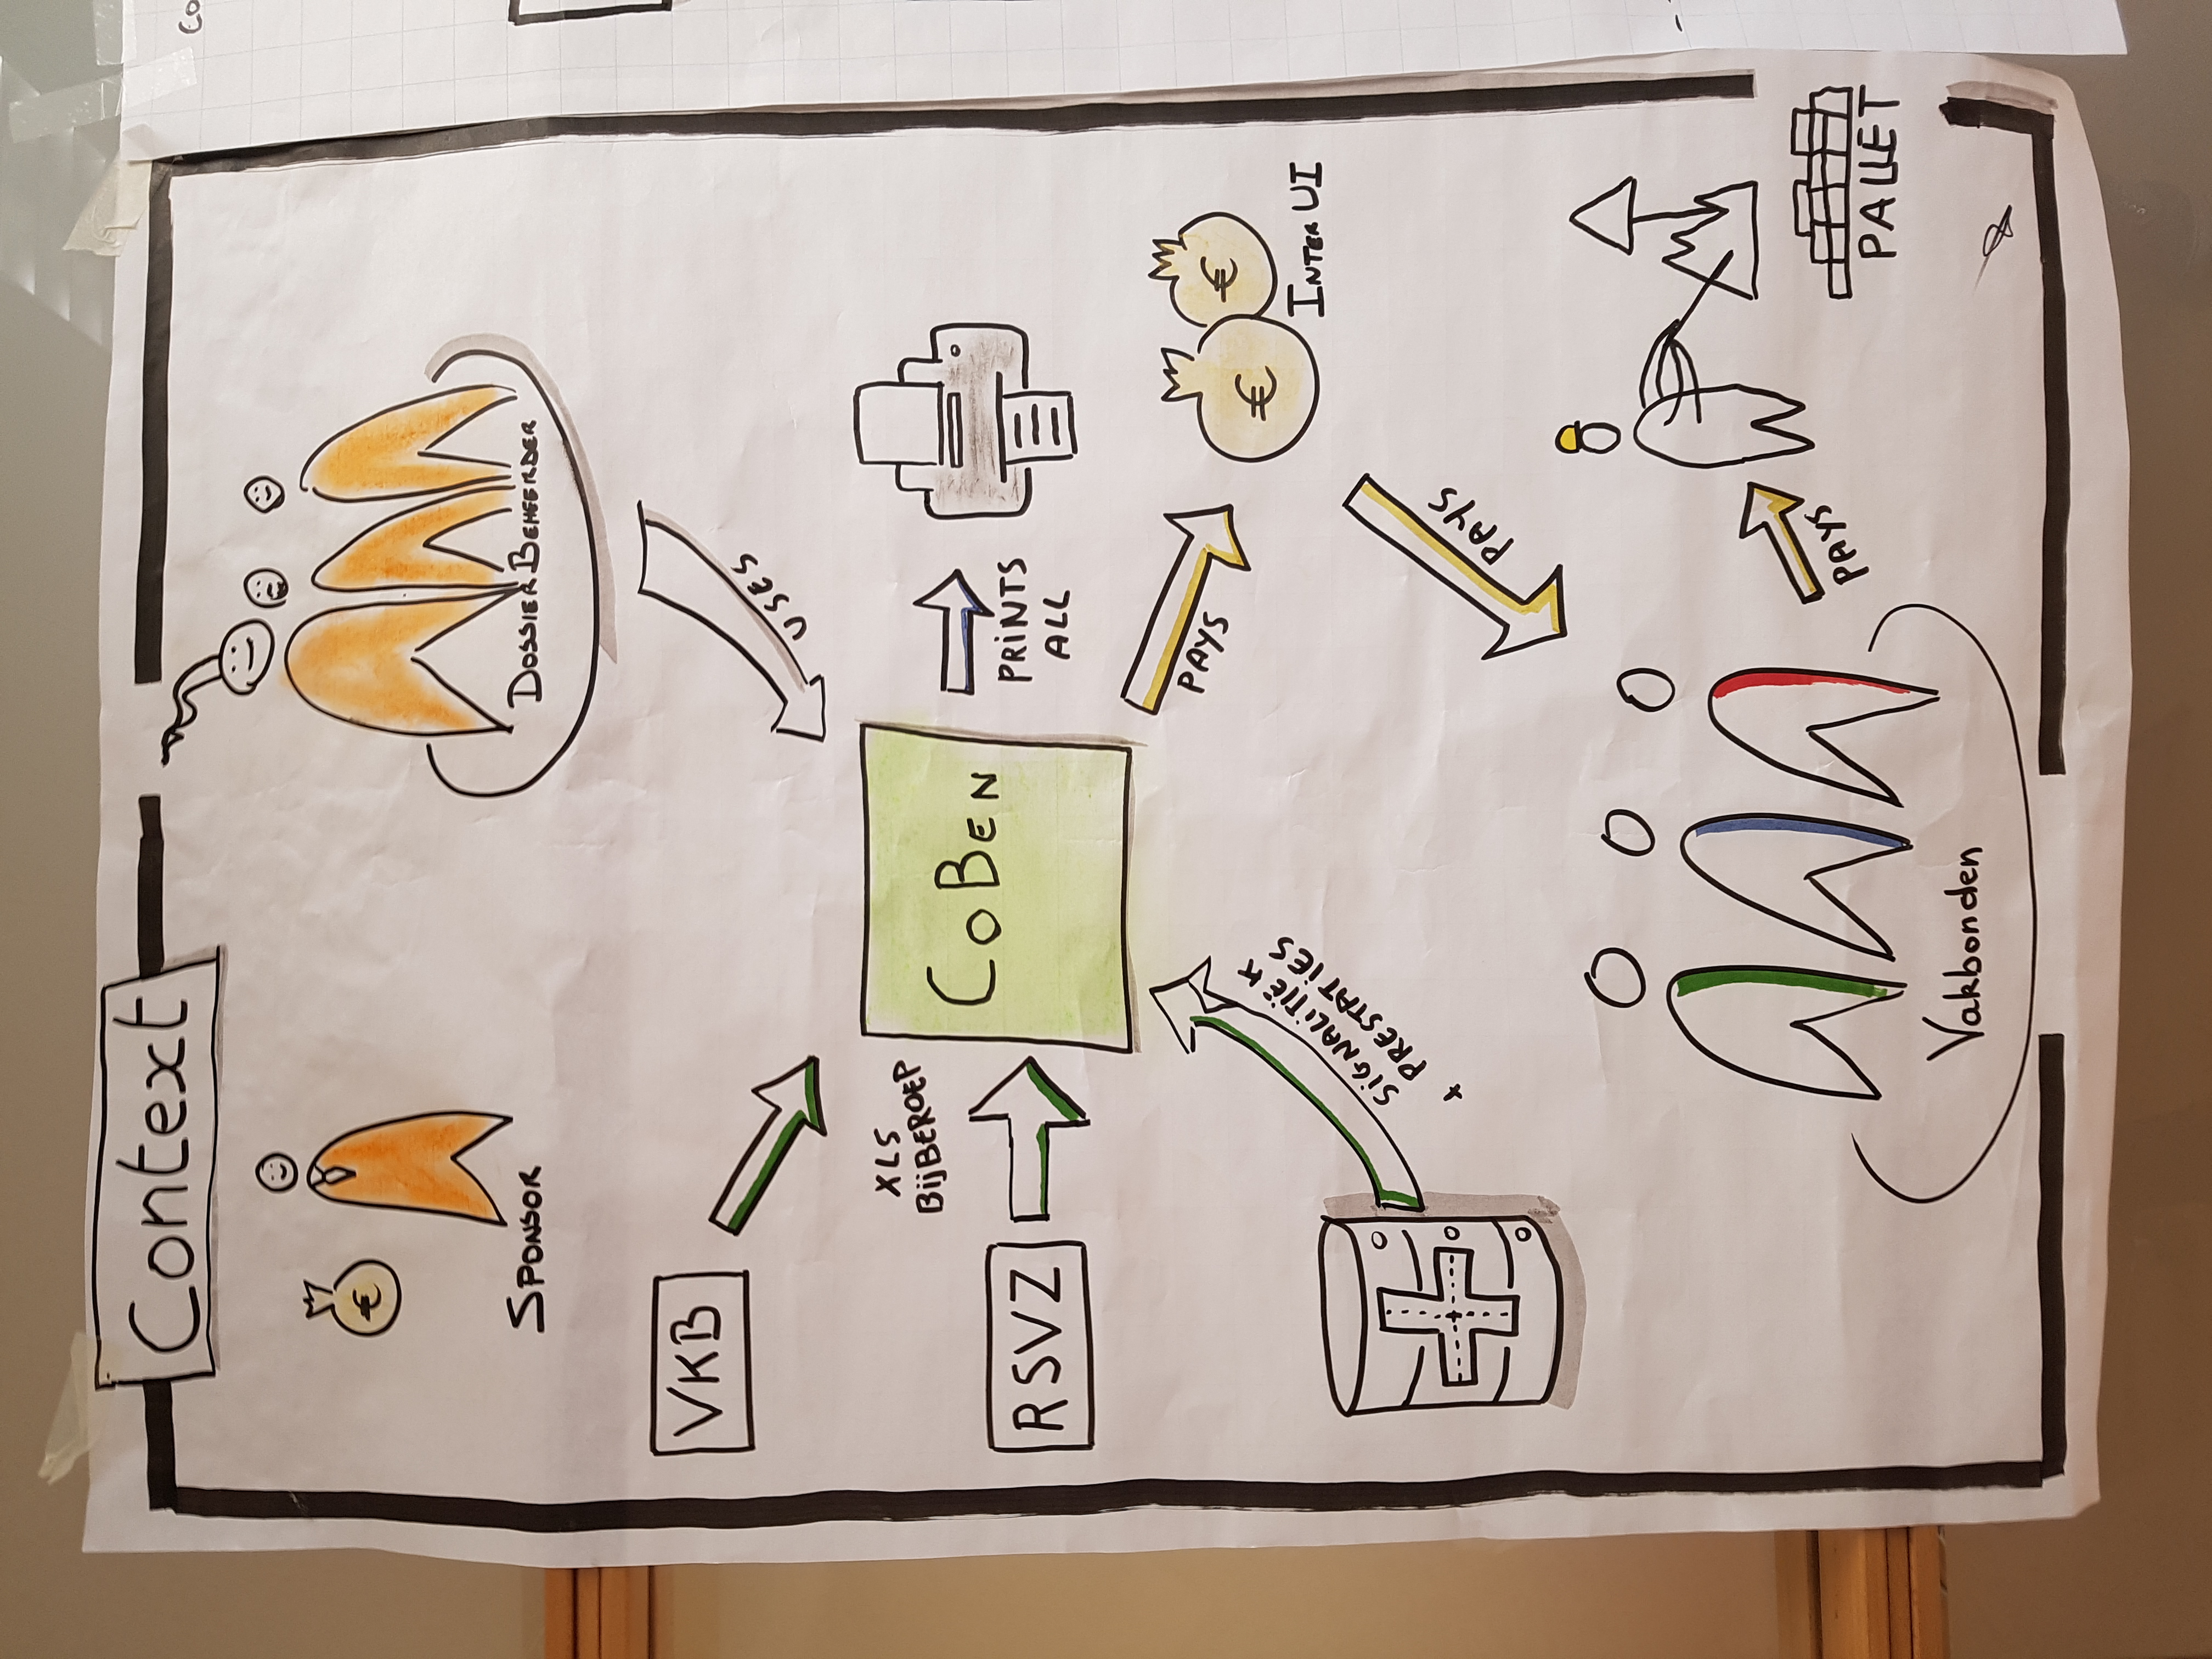 Context
€
SPONSOR
DOSSIER BEHEERDER
VKB
USES
XLS
BijBEROEP
COBEN
RSVZ
PRINTS
ALL
PAYS
€
€
INTER UI
SiGNALiTIËK
+ PRESTATiES
PAYS
PAYS
PALLET
Vakbonden
co